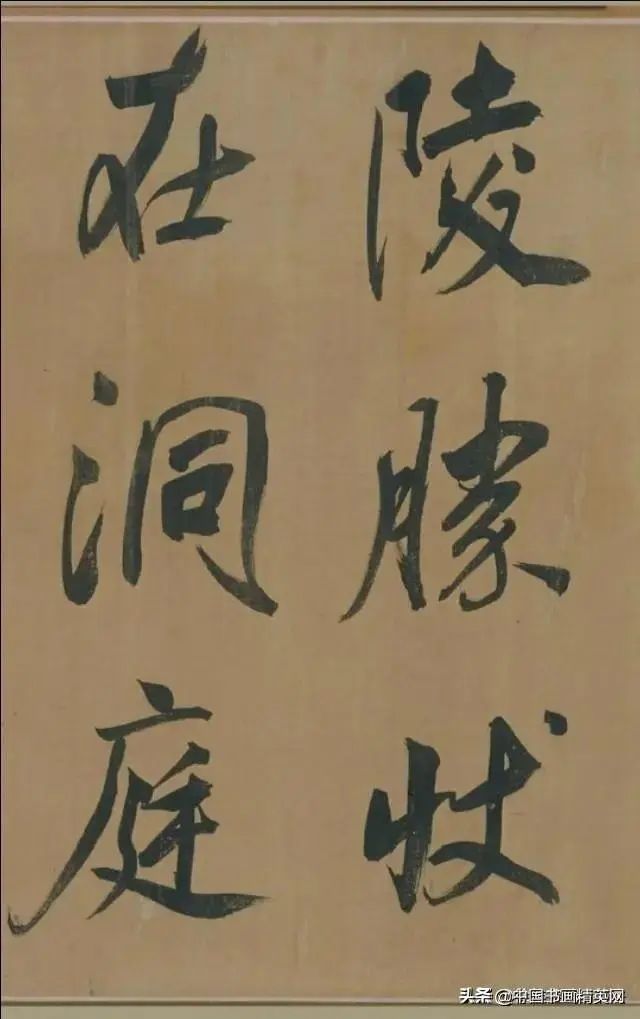 陵勝状
在洞庭
头条 @中国书画精英网